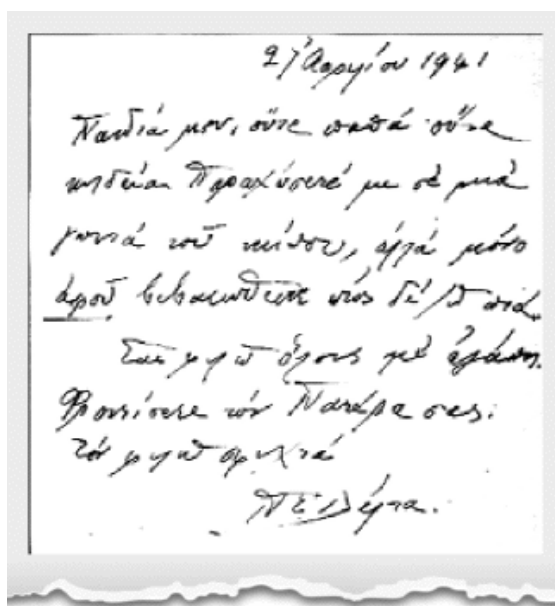 27 Ἀπριλίου 1941
Παιδιά μου, οὔτε παπᾶ οὔτε
κηδεία. Παραχώσετέ με σὲ μιὰ
γωνιά τοῦ κήπου, ἀλλὰ μόνο
ἀφοῦ βεβαιωθεῖτε πὼς δὲ ζῶ πιά.
Σας φιλῶ ὅλους μὲ ἀγάπη.
Φροντίσετε τὸν Πατέρα σας.
Τὸν φιλῶ σφιχτά
Π Σ Δέλτα.